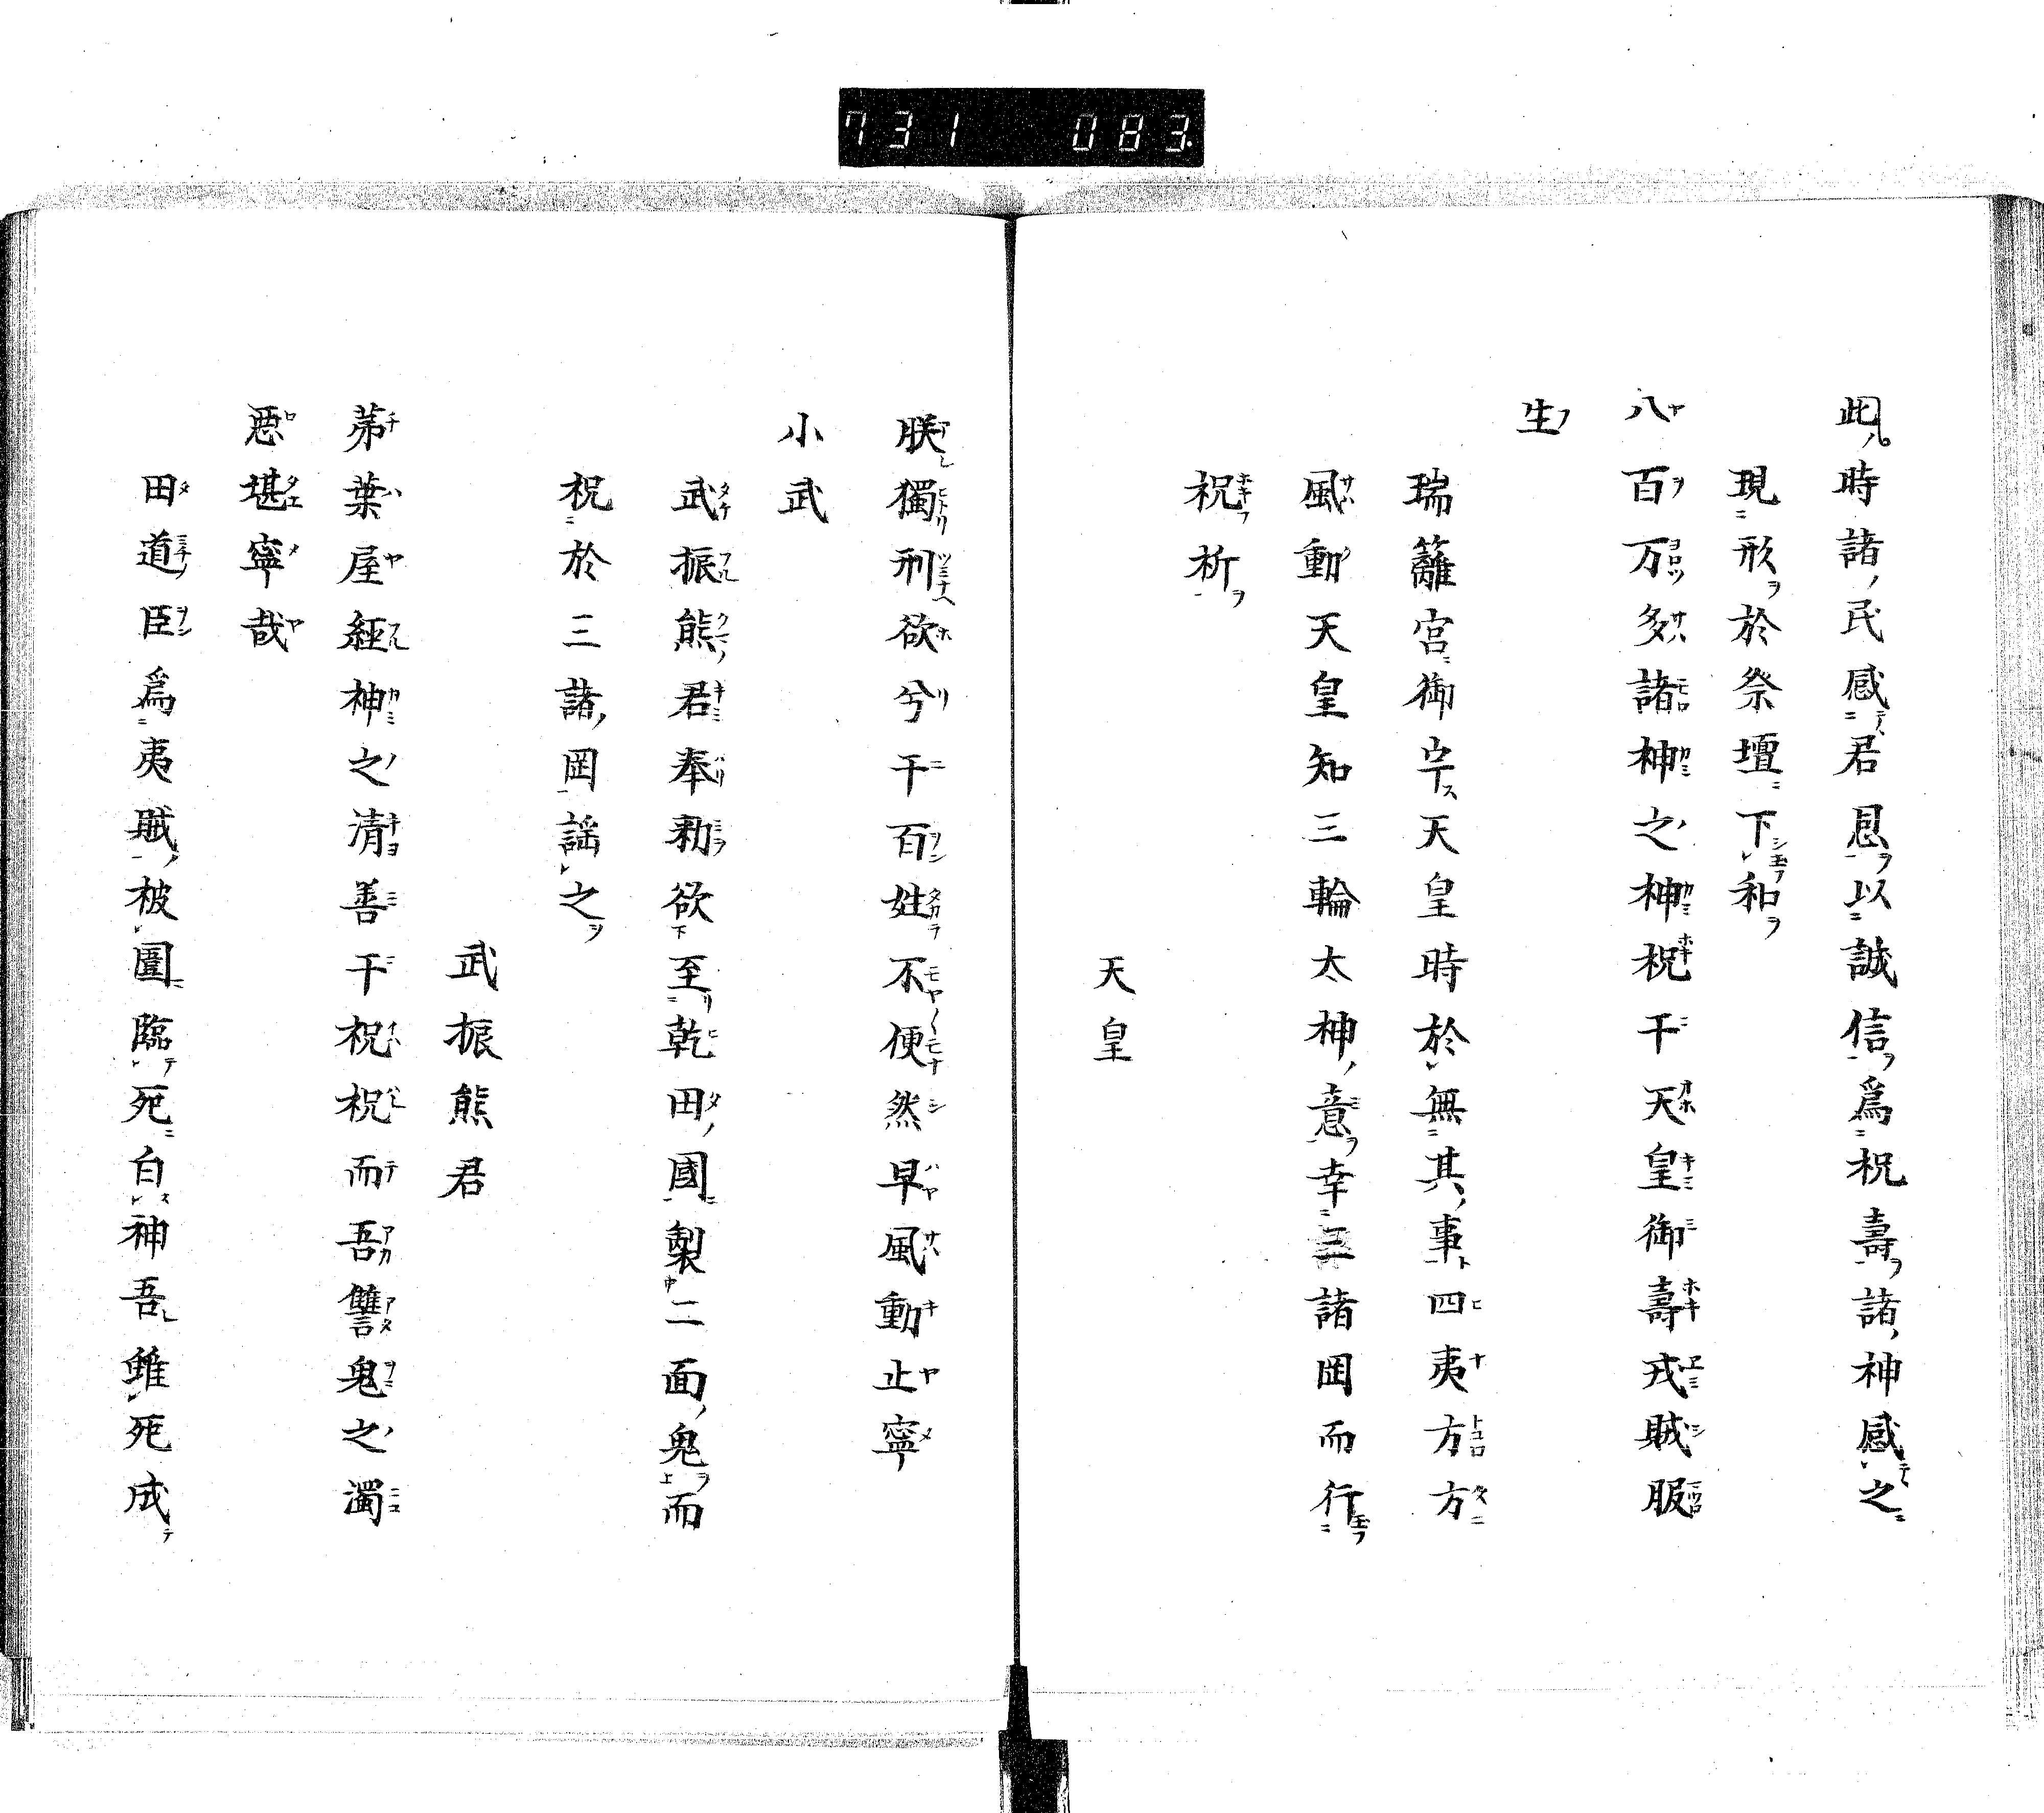 731 083
此時諸民感君恩以誠信爲祝壽諸神感之
現形於祭壇下和
八百万多諸神之神祝干天皇御壽戎賊服
生
瑞籬宮御宇天皇時於無其事四夷方方
風動天皇知三輪大神意幸三諸岡而行
祝祈
天皇
朕獨刑欲兮干百姓不便然早風動止寧
小武
武振熊君奉勅欲至乾田國製二面鬼而
祝於三諸岡謡之
武振熊君
茅葉屋經神之清善干祝祝而吾讐鬼之濁
悪堪寧哉
田道臣爲夷賊被圍臨死白神吾雖死成